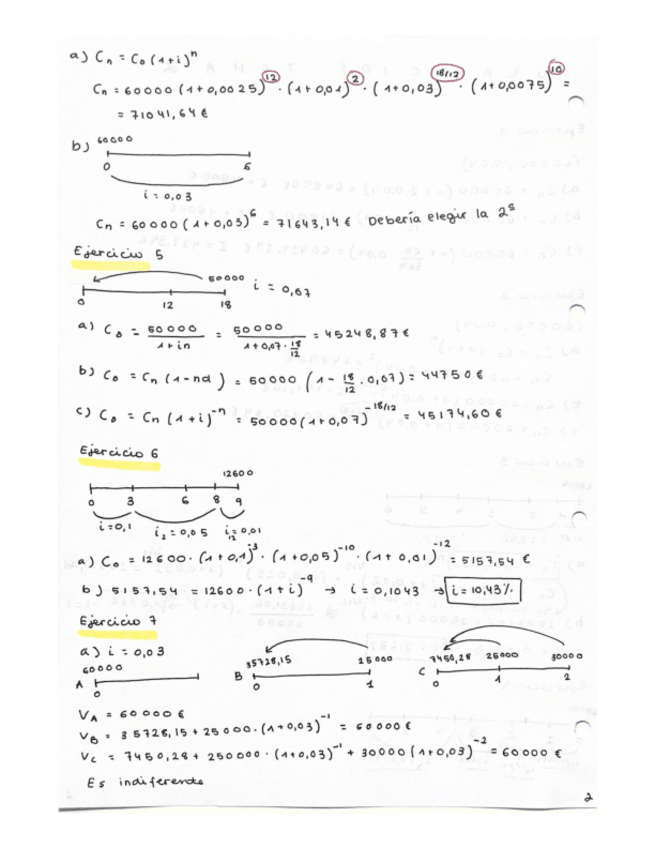 a) Cn = C0 (1+i)^n
Cn = 60000 (1+0,0025)^12 · (1+0,01)^2 · (1+0,03)^18/12 · (1+0,0075)^10 =
= 71041,64 €
b) 60000
0 6
i = 0,03
Cn = 60000 (1+0,03)^6 = 71643,14 € Debería elegir la 2ª
Ejercicio 5
50000 i = 0,07
0 12 18
a) C0 = 50000 / 1+in = 50000 / 1+0,07·18/12 = 45248,87 €
b) C0 = Cn (1-nd) = 50000 (1 - 18/12 · 0,07) = 44750 €
c) C0 = Cn (1+i)^-n = 50000 (1+0,07)^-18/12 = 45174,60 €
Ejercicio 6
12600
0 3 6 8 9
i=0,1 i2 = 0,05 i12 = 0,01
a) C0 = 12600 · (1+0,1)^-3 · (1+0,05)^-10 · (1+0,01)^-12 = 5157,54 €
b) 5157,54 = 12600 · (1+i)^-9 → i = 0,1043 → i = 10,43%
Ejercicio 7
a) i = 0,03
60000
A 0
35728,15 25000
B 0 1
7450,28 25000 30000
C 0 1 2
VA = 60000 €
VB = 35728,15 + 25000 · (1+0,03)^-1 = 60000 €
Vc = 7450,28 + 250000 · (1+0,03)^-1 + 30000 (1+0,03)^-2 = 60000 €
Es indiferente
2